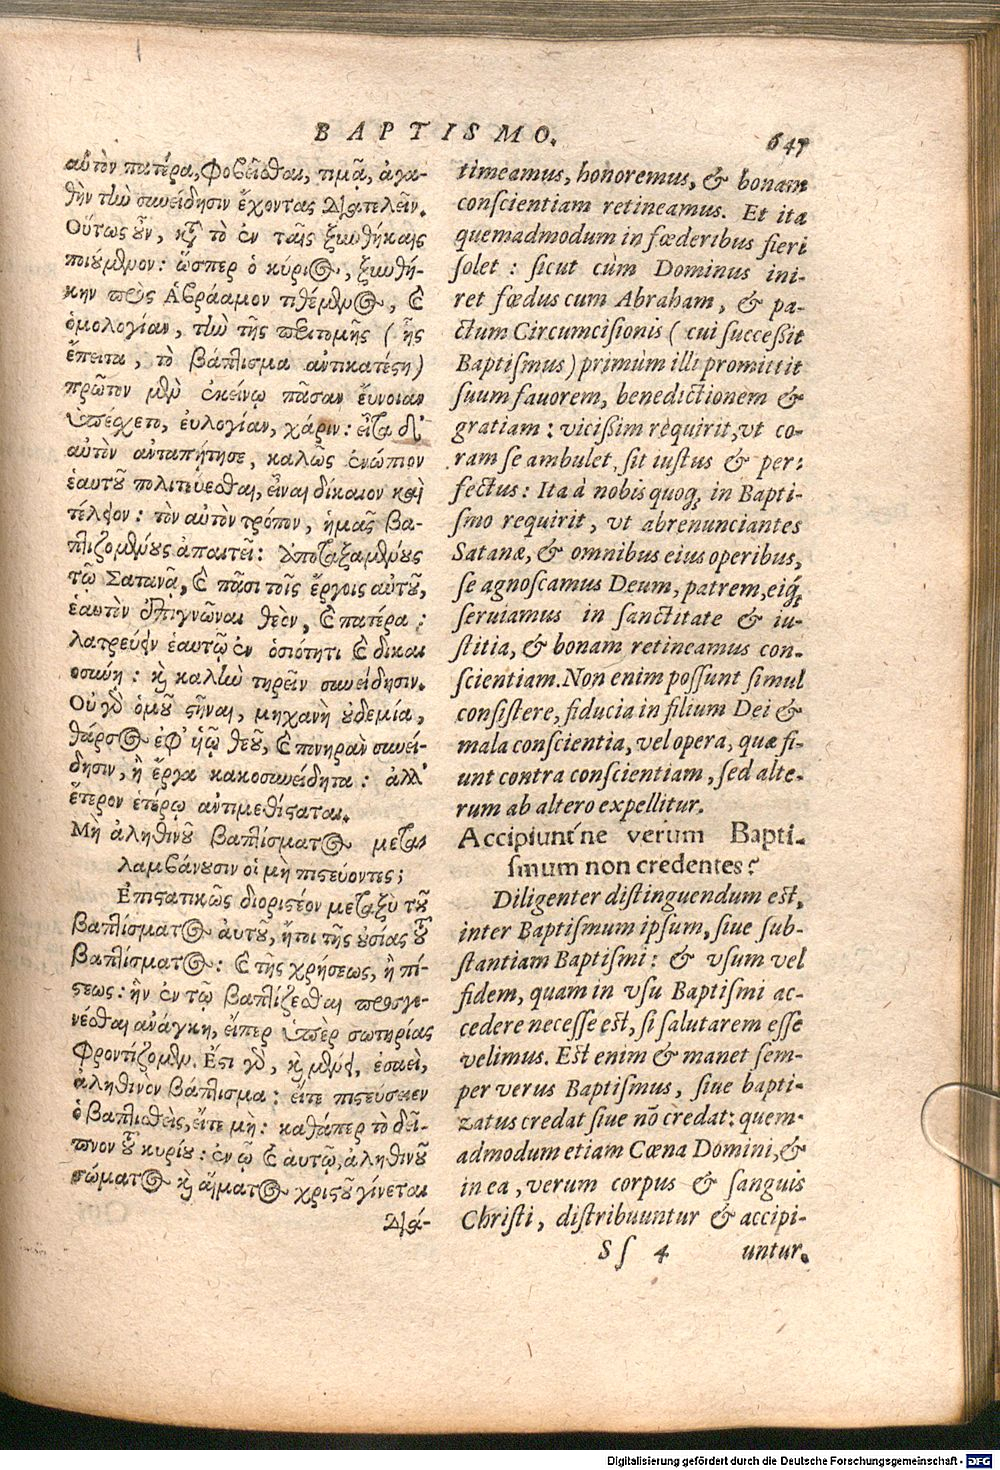 BAPTISMO. 647
αὐτὸν πατέρα, φοβεῖσθαι, τιμᾷν, ἀγα-
θὴν τὴν συνείδησιν ἔχοντας διατελεῖν.
Οὕτως οὖν, καὶ τὸ ἐν ταῖς ξυνθήκαις
ποιούμενον: ὥσπερ ὁ κύριος, ξυνθή-
κην πρὸς Ἀβράαμον τιθέμενος, καὶ
ὁμολογίαν, τὴν τῆς περιτομῆς (ἧς
ἔπειτα, τὸ βάπτισμα ἀντικατέστη)
πρῶτον μὲν ἐκείνῳ πᾶσαν ἔυνοιαν
ὑπέσχετο, ἐυλογίαν, χάριν: εἶτα δ'
αὐτὸν ἀνταπῄτησε, καλῶς ἐνώπιον
ἑαυτοῦ πολιτεύεσθαι, εἶναι δίκαιον καὶ
τέλειον: τὸν αὐτὸν τρόπον, ἡμᾶς βα-
πτιζομένους ἀπαιτεῖ: ἀποταξαμένους
τῷ Σατανᾷ, καὶ πᾶσι τοῖς ἔργοις αὐτοῦ,
ἑαυτὸν ἐπιγνῶναι θεὸν, καὶ πατέρα:
λατρεύειν ἑαυτῷ ἐν ὁσιότητι καὶ δικαι
οσύνῃ: καὶ καλὴν τηρεῖν συνείδησιν.
Οὐ γὰρ ὁμοῦ στῆναι, μηχανὴ οὐδεμία,
θάρσος ἐφ' ὑιῷ θεοῦ, καὶ πονηρὰν συνεί-
δησιν, ἢ ἔργα κακοσυνείδητα: ἀλλ'
ἕτερον ἑτέρῳ ἀντιμεθίσταται.
Μὴ ἀληθινοῦ βαπτίσματος μετα-
λαμβάνουσιν οἱ μὴ πιστεύοντες;
Ἐπιστατικῶς διοριστέον μεταξὺ τοῦ
βαπτίσματος αὐτοῦ, ἤτοι τῆς οὐσίας τοῦ
βαπτίσματος: καὶ τῆς χρήσεως, ἢ πί-
στεως: ἣν ἐν τῷ βαπτίζεσθαι προσγε-
νέσθαι ἀνάγκη, εἴπερ ὑπὲρ σωτηρίας
φροντίζομεν. Ἔστι γὰρ, καὶ μένει, ἐσαεὶ,
ἀληθινὸν βάπτισμα: εἴτε πιστεύσειεν
ὁ βαπτισθεὶς, εἴτε μὴ: καθάπερ τὸ δεῖ-
πνον τοῦ κυρίου: ἐν ᾧ καὶ ἀυτῷ, ἀληθινοῦ
σώματος καὶ αἵματος χριστοῦ γίνεται
διά-
timeamus, honoremus, & bonam
conscientiam retineamus. Et ita
quemadmodum in fœderibus fieri
solet: sicut cùm Dominus ini-
ret fœdus cum Abraham, & pa-
ctum Circumcisionis (cui successit
Baptismus) primùm illi promittit
suum fauorem, benedictionem &
gratiam: vicissim requirit, vt co-
ram se ambulet, sit iustus & per-
fectus: Ita à nobis quoq; in Bapti-
smo requirit, vt abrenunciantes
Satanæ, & omnibus eius operibus,
se agnoscamus Deum, patrem, eiq́;
seruiamus in sanctitate & iu-
stitia, & bonam retineamus con-
scientiam. Non enim possunt simul
consistere, fiducia in filium Dei &
mala conscientia, vel opera, quæ fi-
unt contra conscientiam, sed alte-
rum ab altero expellitur.
Accipiuntne verum Bapti-
smum non credentes?
Diligenter distinguendum est,
inter Baptismum ipsum, siue sub-
stantiam Baptismi: & vsum vel
fidem, quam in vsu Baptismi ac-
cedere necesse est, si salutarem esse
velimus. Est enim & manet sem-
per verus Baptismus, siue bapti-
zatus credat siue nō credat: quem-
admodum etiam Cœna Domini, &
in ea, verum corpus & sanguis
Christi, distribuuntur & accipi-
Ss 4 untur.
Digitalisierung gefördert durch die Deutsche Forschungsgemeinschaft - DFG